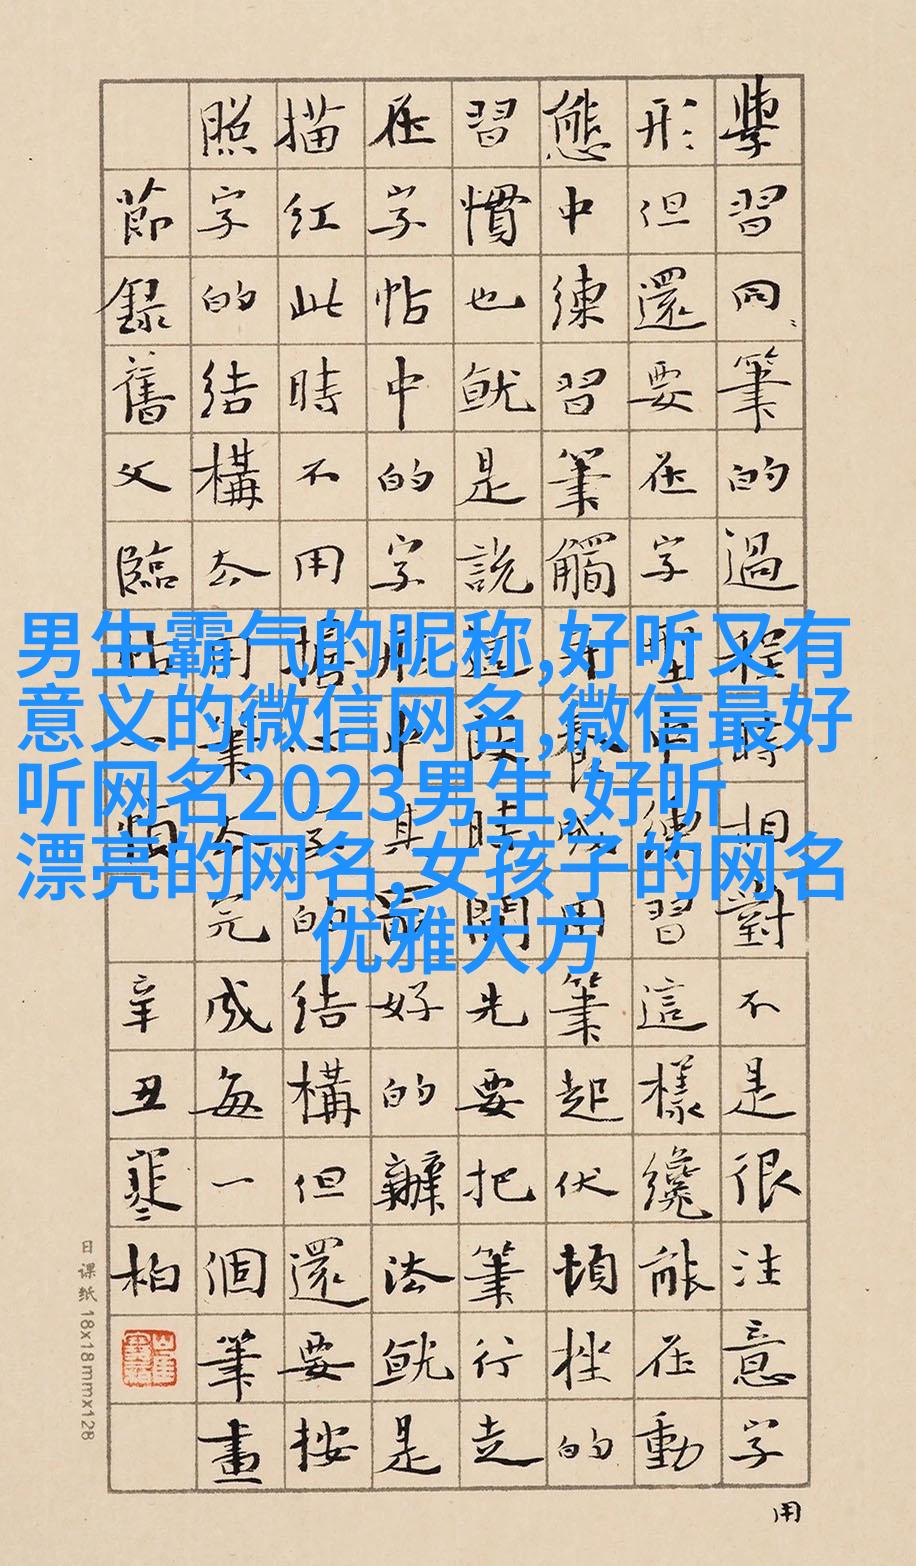 男生霸气的昵称,好听又有
意义的微信网名,微信最好
听网名2023男生,好听
漂亮的网名,女孩子的网名
优雅大方
學習同筆的過程時相對不是很注意字
形但還要在字中練習這樣纔能在動
態中練習筆觸養成用筆起伏頓挫的
習慣也就是說這段時間先要把筆行走
在字帖中的字形中其最好的辦法就是
描紅此時不用擔心的結構但還要按
照字的結構去用筆去完成每一個筆畫
節錄舊文臨帖一類
辛丑寒柏
用
日课纸 18x18mmx128